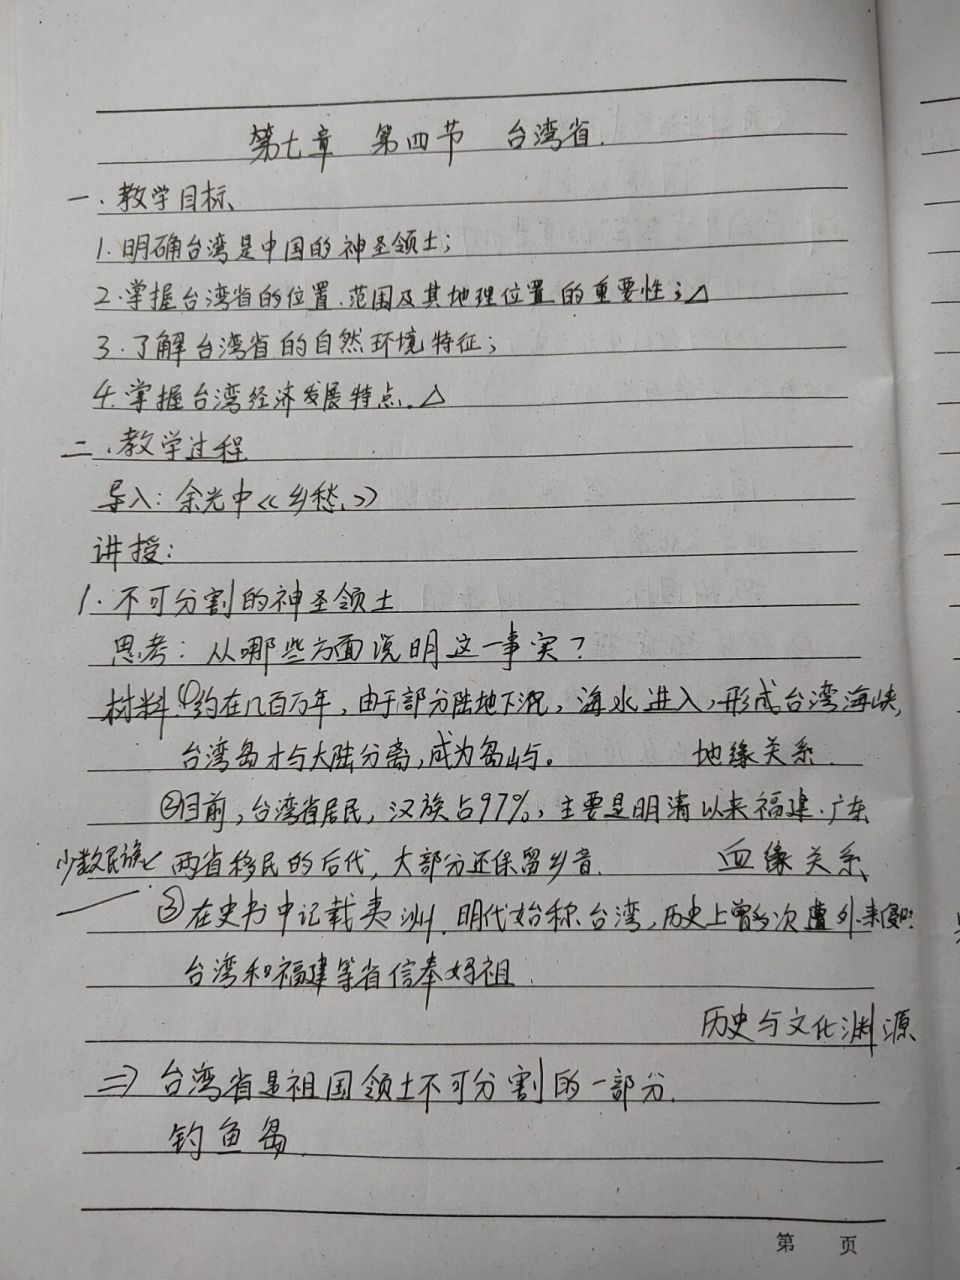 第七章 第四节 台湾省.
一、教学目标
1.明确台湾是中国的神圣领土；
2.掌握台湾省的位置、范围及其地理位置的重要性；△
3.了解台湾省的自然环境特征；
4.掌握台湾经济发展特点。△
二、教学过程
导入：余光中《乡愁》
讲授：
1.不可分割的神圣领土
思考：从哪些方面说明这一事实？
材料：①约在几百万年，由于部分陆地下沉，海水进入，形成台湾海峡，
台湾岛才与大陆分离，成为岛屿。 地缘关系.
②目前，台湾省居民，汉族占97%，主要是明清以来福建、广东
少数民族 两省移民的后代，大部分还保留乡音. 血缘关系
③在史书中记载夷洲.明代始称台湾，历史上曾多次遭外来侵
台湾和福建等省信奉妈祖.
历史与文化渊源
⇒ 台湾省是祖国领土不可分割的一部分.
钓鱼岛
第 页